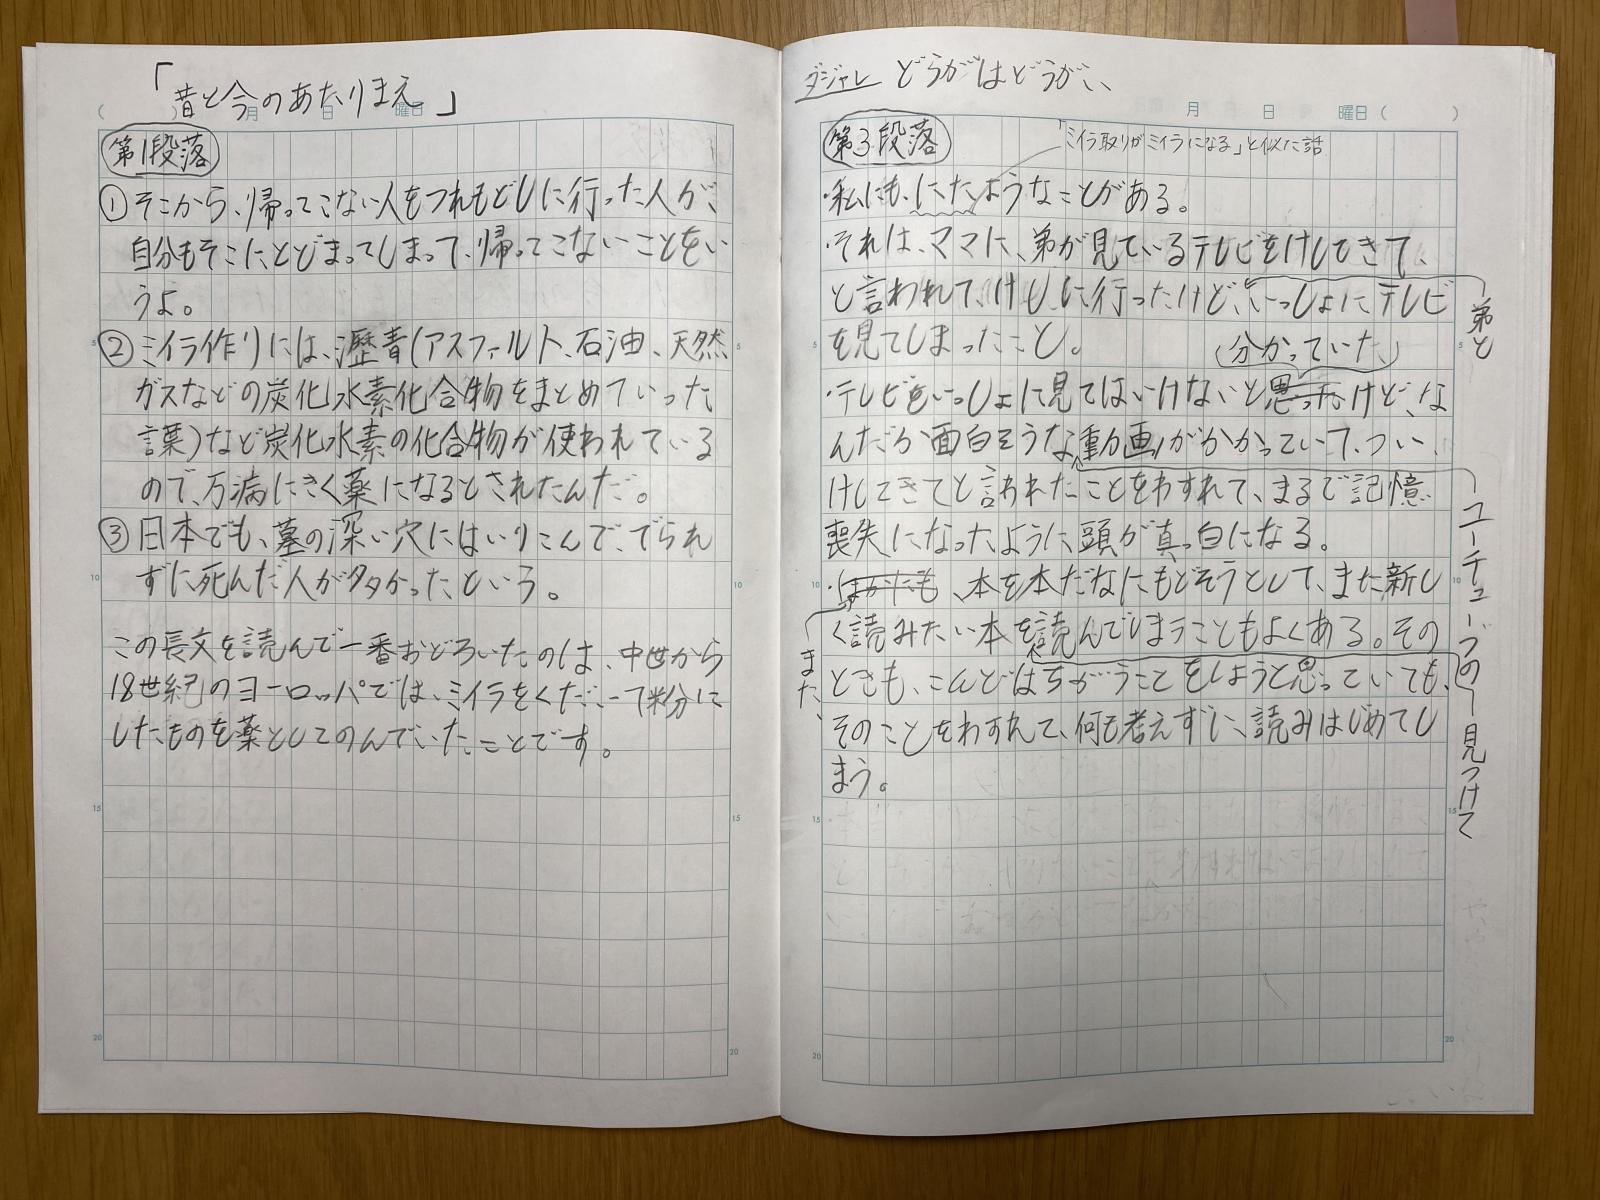 「昔と今のあたりまえ」
( ) 月 日 曜日
第1段落
①そこから、帰ってこない人をつれもどしに行った人が、
自分もそこにとどまってしまって、帰ってこないことをい
うよ。
②ミイラ作りには、瀝青(アスファルト、石油、天然
ガスなどの炭化水素化合物をまとめていった
言葉)など炭化水素の化合物が使われている
ので、万病にきく薬になるとされたんだ。
③日本でも、墓の深い穴にはいりこんで、でられ
ずに死んだ人が多かったという。
この長文を読んで一番おどろいたのは、中世から
18世紀のヨーロッパでは、ミイラをくだいて粉に
したものを薬としてのんでいたことです。
5
10
15
20
ダジャレ どうがはどうが、
月 日 曜日 ( )
第3段落
「ミイラ取りがミイラになる」と似た話
・私にも、にたようなことがある。
・それは、ママに、弟が見ているテレビをけしてきて、
と言われて、けしに行ったけど、いっしょにテレビ
弟と
を見てしまったこと。
分かっていた
・テレビをいっしょに見てはいけないと思ったけど、な
んだか面白そうな動画がかかっていて、つい、
ユーチューブの
けしてきてと言われたことをわすれて、まるで記憶
喪失になったように頭が真っ白になる。
・ほかにも、本を本だなにもどそうとして、また新し
また、
く読みたい本を読んでしまうこともよくある。その
見つけて
ときも、こんどはちがうことをしようと思っていても、
そのことをわすれて、何も考えずに、読みはじめてし
まう。
5
10
15
20